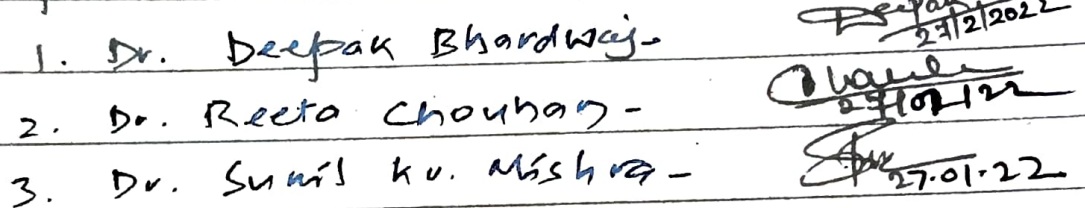 1. Dr. Deepak Bhardwaj- Deepak 27/2/2022
2. Dr. Reeta Chouhan - 27/01/22
3. Dr. Sunil Ku. Mishra - 27.01.22